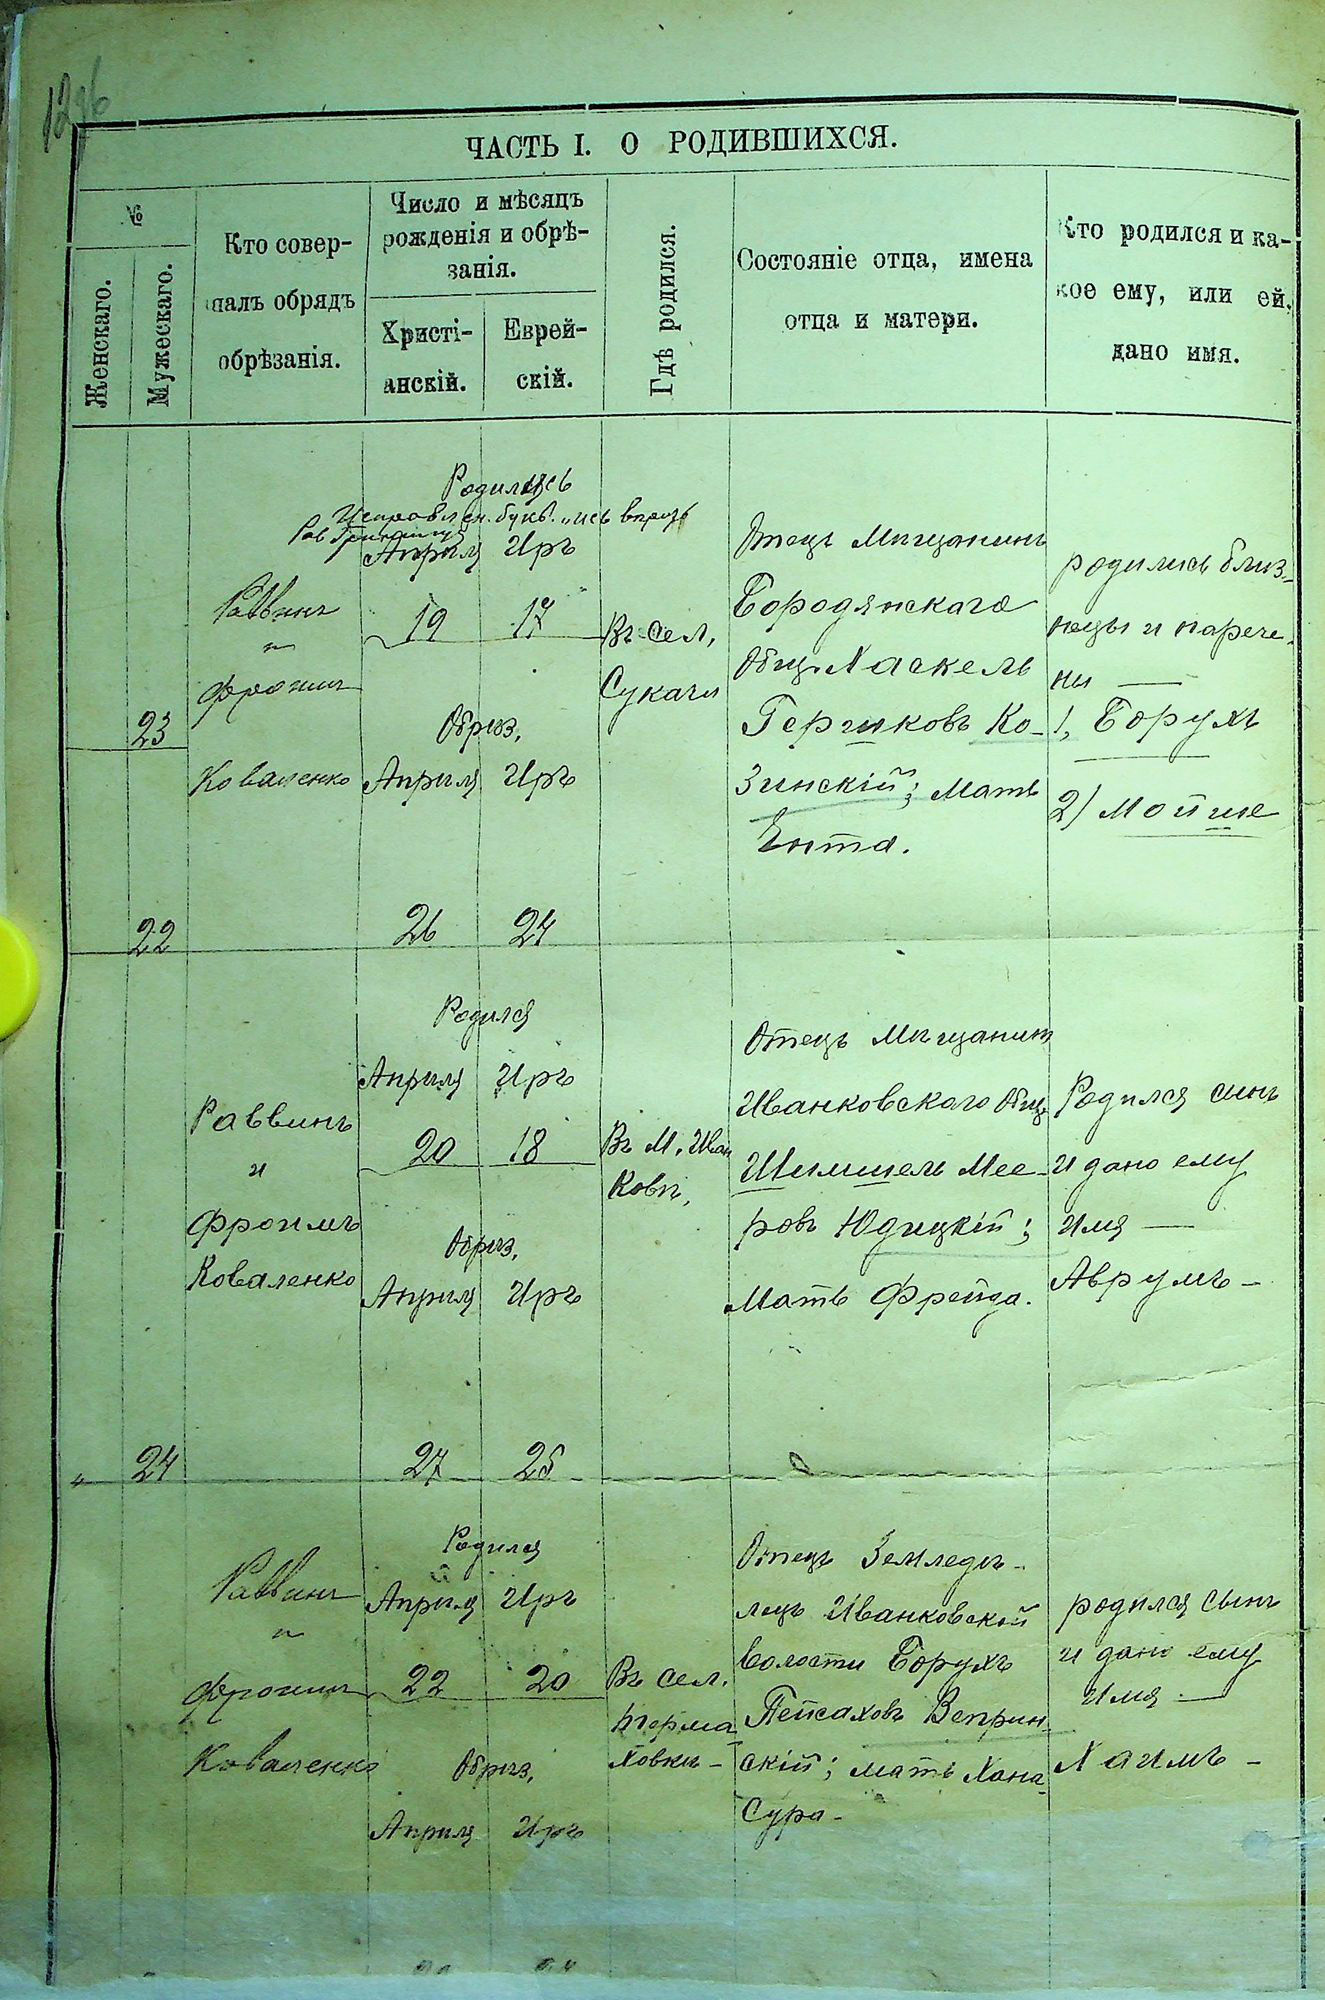 ЧАСТЬ I. О РОДИВШИХСЯ.
№
Женскаго.
Мужескаго.
Кто совер-
шалъ обрядъ
обрѣзанія.
Число и мѣсяцъ
рожденія и обрѣ-
занія.
Христі-
анскій.
Еврей-
скій.
Гдѣ родился.
Состояніе отца, имена
отца и матери.
Кто родился и ка-
кое ему, или ей,
дано имя.
23
22
Раввинъ
и
Фроимъ
Коваленко
Родились
Исправлен. букв. „ись
Апрѣля Иръ
19 17
Обрѣз.
Апрѣля Иръ
26 24
Въ сел.
Сукачи
Отецъ Мѣщанинъ
Бородянскаго
Общ. Хаскель
Гершковъ Ко-
зинскій; Мать
Ента.
родились близ-
нецы и нарече-
ны —
1, Борухъ
2) Мойше
„ 24
Раввинъ
и
Фроимъ
Коваленко
Родился
Апрѣля Иръ
20 18
Обрѣз.
Апрѣля Иръ
27 25
Въ М. Иван
ковѣ,
Отецъ Мѣщанинъ
Иванковскаго Общ.
Шимшель Мее-
ровъ Юдицкій;
Мать Фрейда.
Родился сынъ
и дано ему
имя —
Аврумъ —
Раввинъ
и
Фроимъ
Коваленко
Родился
Апрѣля Иръ
22 20
Обрѣз.
Апрѣля Иръ
Въ сел.
Терма
ховкѣ —
Отецъ Земледѣ-
лецъ Иванковской
волости Борухъ
Пейсаховъ Веприн-
скій; мать Хана-
Сура —
родился сынъ
и дано ему
имя —
Хаимъ —